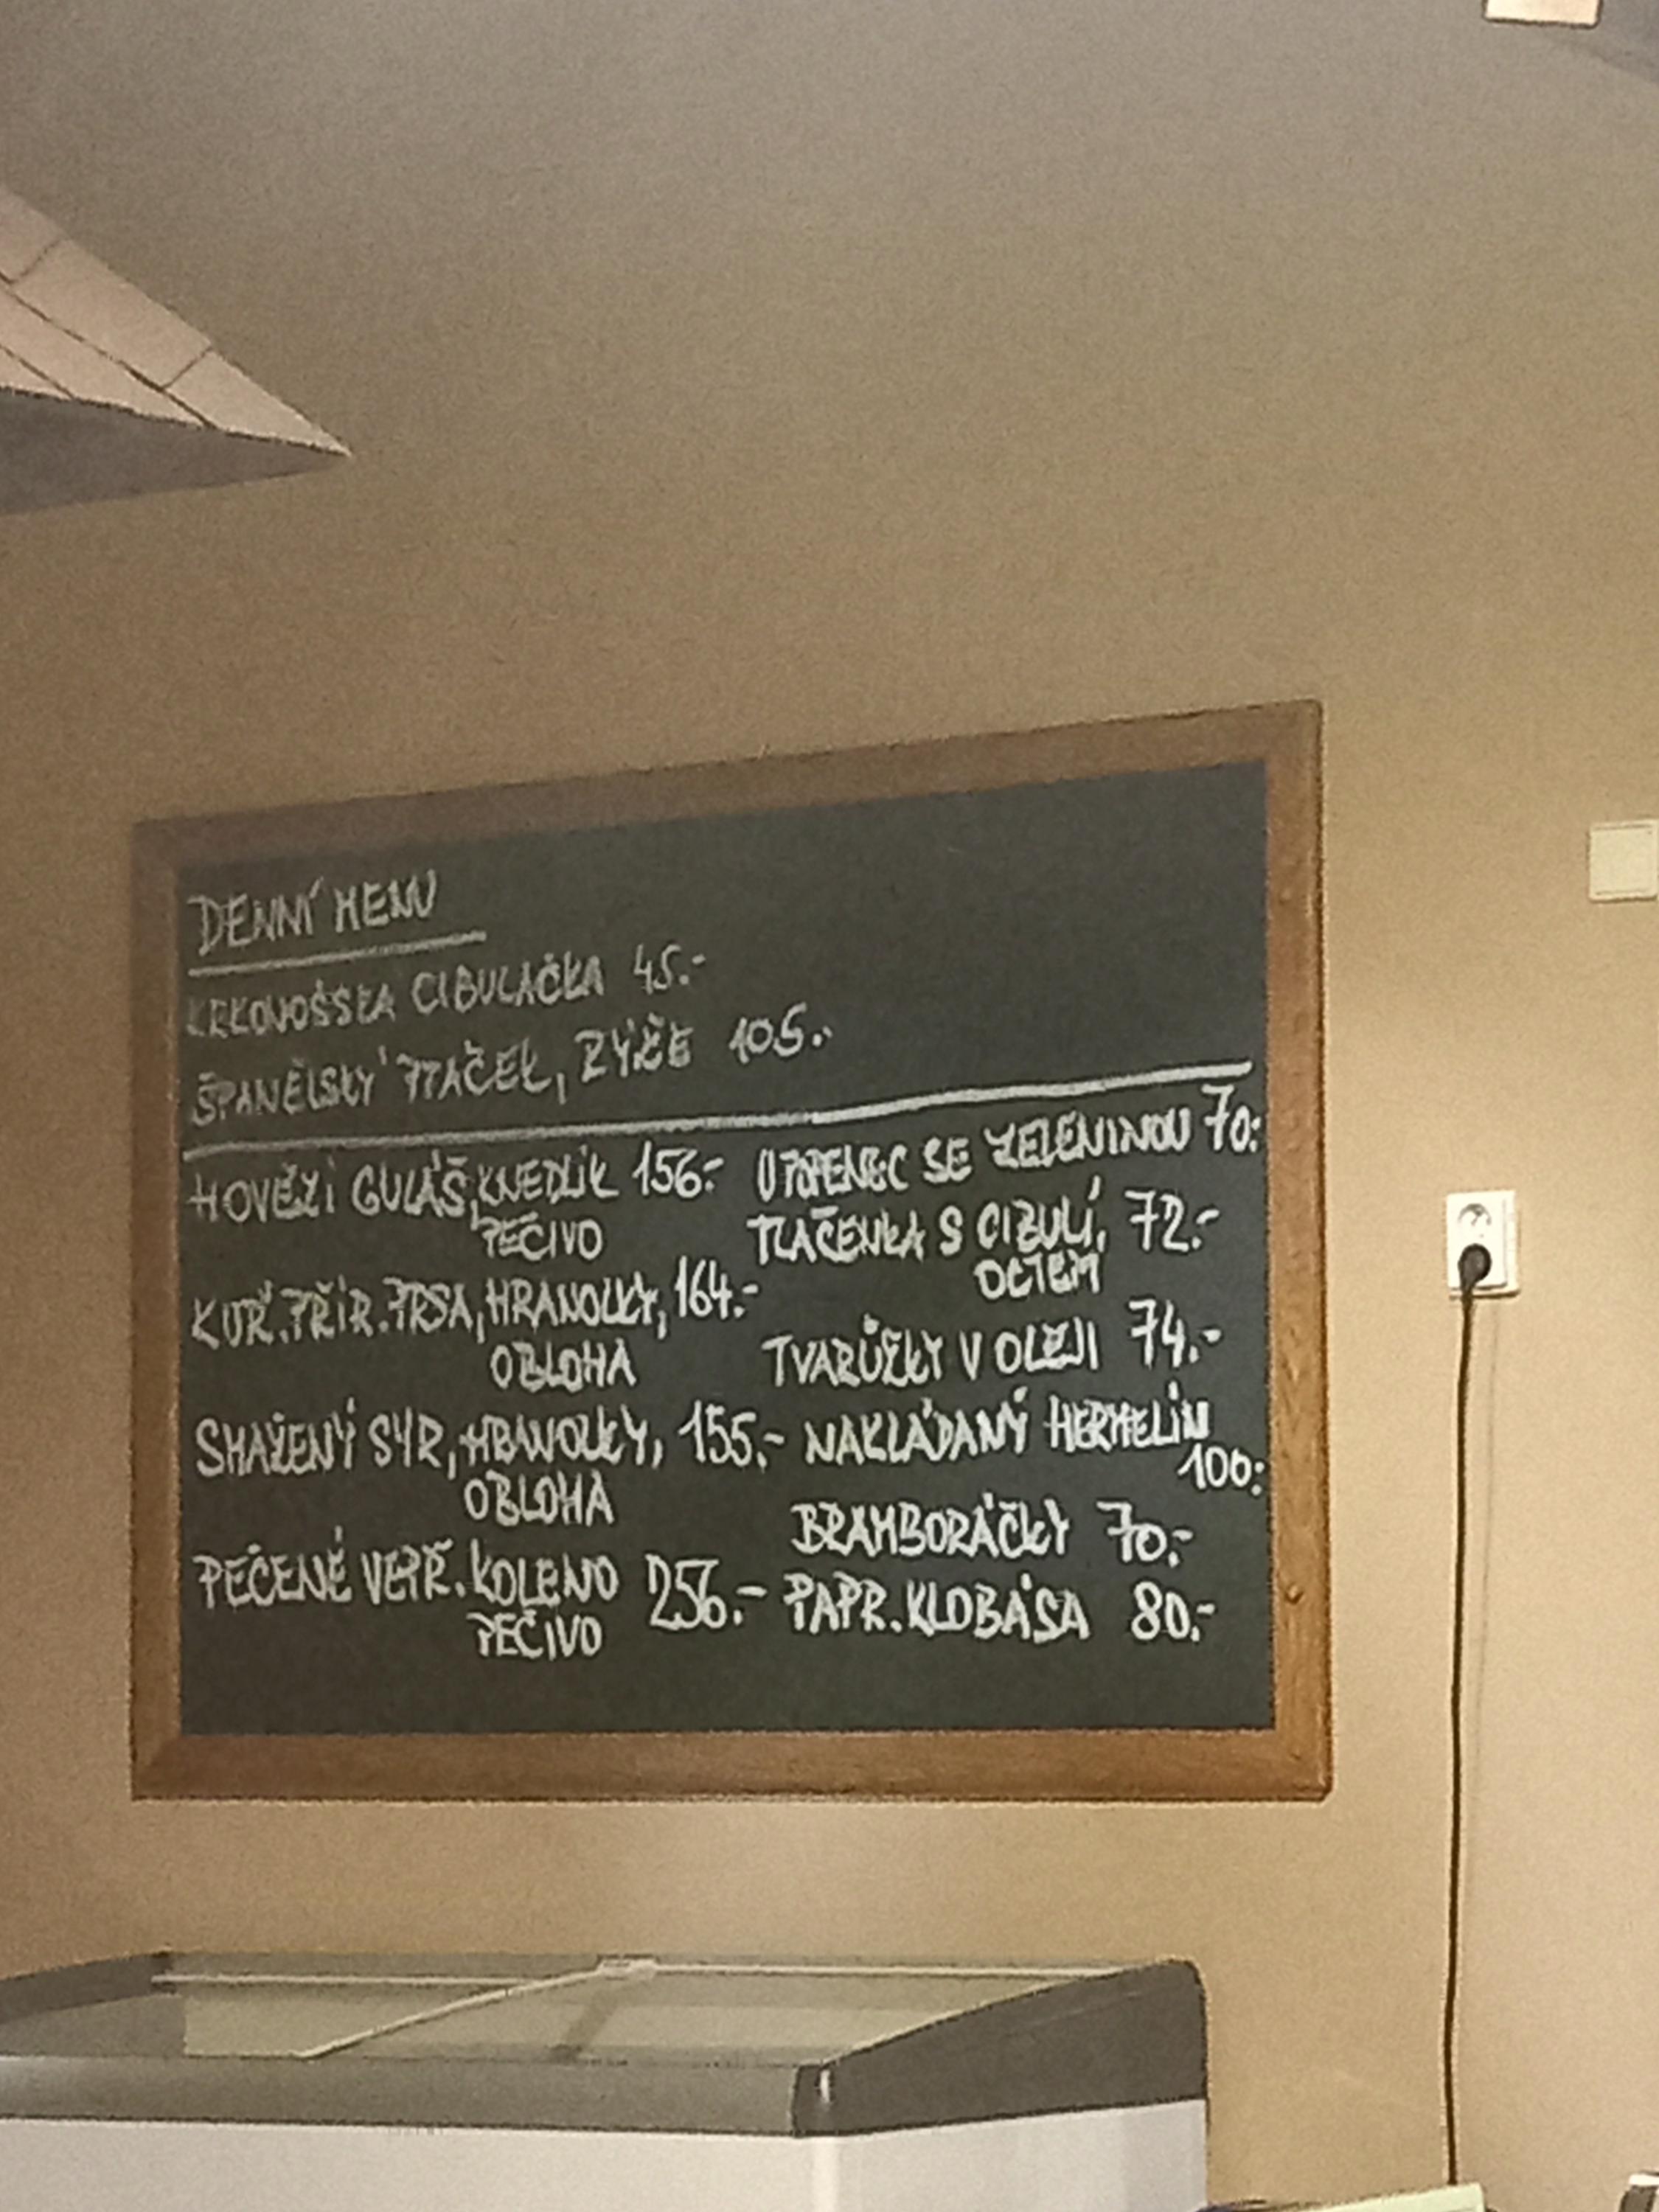 DENNÍ MENU
KRKONOŠSKÁ CIBULAČKA 45.-
ŠPANĚLSKÝ PTAČEK, RÝŽE 105.-
HOVĚZÍ GULÁŠ, KNEDLÍK 156.-
PEČIVO
KUŘ. PŘÍR. PRSA, HRANOLKY, 164.-
OBLOHA
SMAŽENÝ SÝR, HRANOLKY, 155.-
OBLOHA
PEČENÉ VEPŘ. KOLENO 256.-
PEČIVO
UTOPENEC SE ZELENINOU 70.-
TLAČENKA S CIBULÍ, 72.-
OCTEM
TVARŮŽKY V OLEJI 74.-
NAKLÁDANÝ HERMELÍN
100.-
BRAMBORÁČKY 70.-
PAPR. KLOBÁSA 80.-